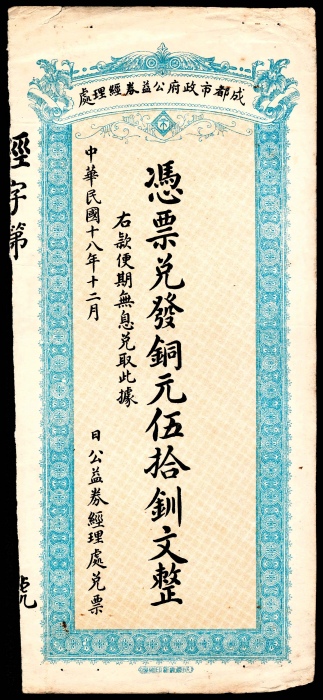 成都市政府公益券經理處
憑票兌發銅元伍拾釧文整
右款便期無息兌取此據
中華民國十八年十二月 日公益券經理處兌票
經字第 號